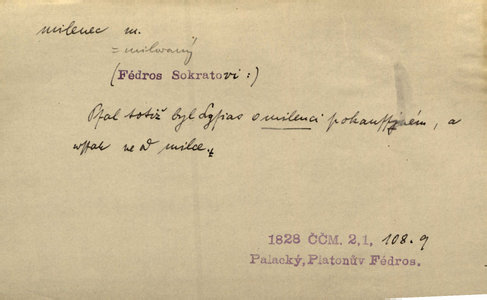 milenec m.
= milovaný
(Fédros Sokratovi:)
Psal totiž byl Lysias o milenci pokauss̄ném, a
wssak ne od milce.
1828 ČČM. 2,1, 108.9
Palacký, Platonův Fédros.